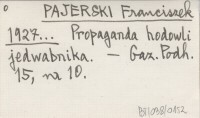 PAJERSKI Franciszek
1927... Propaganda hodowli
jedwabnika. – Gaz. Podh.
15, nr 10.